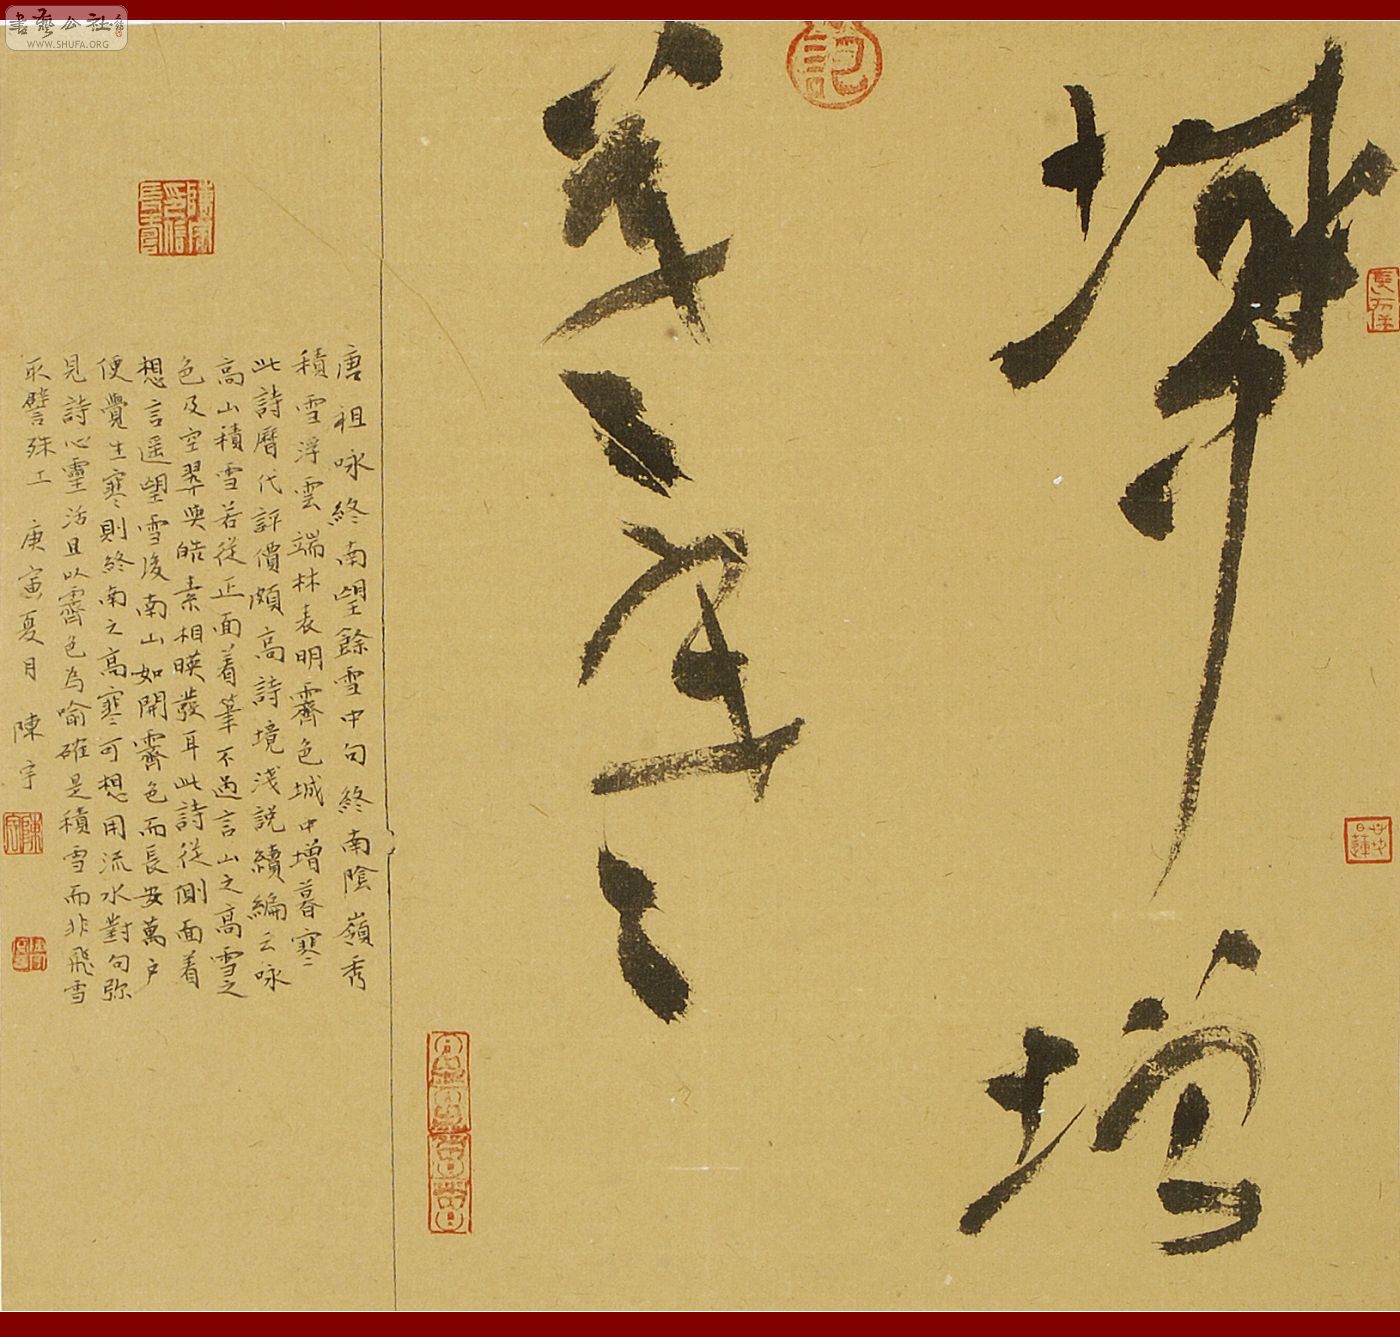 書藝公社
WWW.SHUFA.ORG
城中增
暮寒
唐祖咏終南望餘雪中句終南陰嶺秀
積雪浮雲端林表明霽色城中增暮寒
此詩曆代評價頗高詩境淺説續編云咏
高山積雪若從正面着筆不過言山之高雪之
色及空翠與皓素相暎發耳此詩從側面着
想言遥望雪後南山如開霽色而長安萬户
便覺生寒則終南之高寒可想用流水對句弥
見詩心靈活且以霽色為喻確是積雪而非飛雪
取譬殊工 庚寅夏月 陳宇
陳宇印信長壽